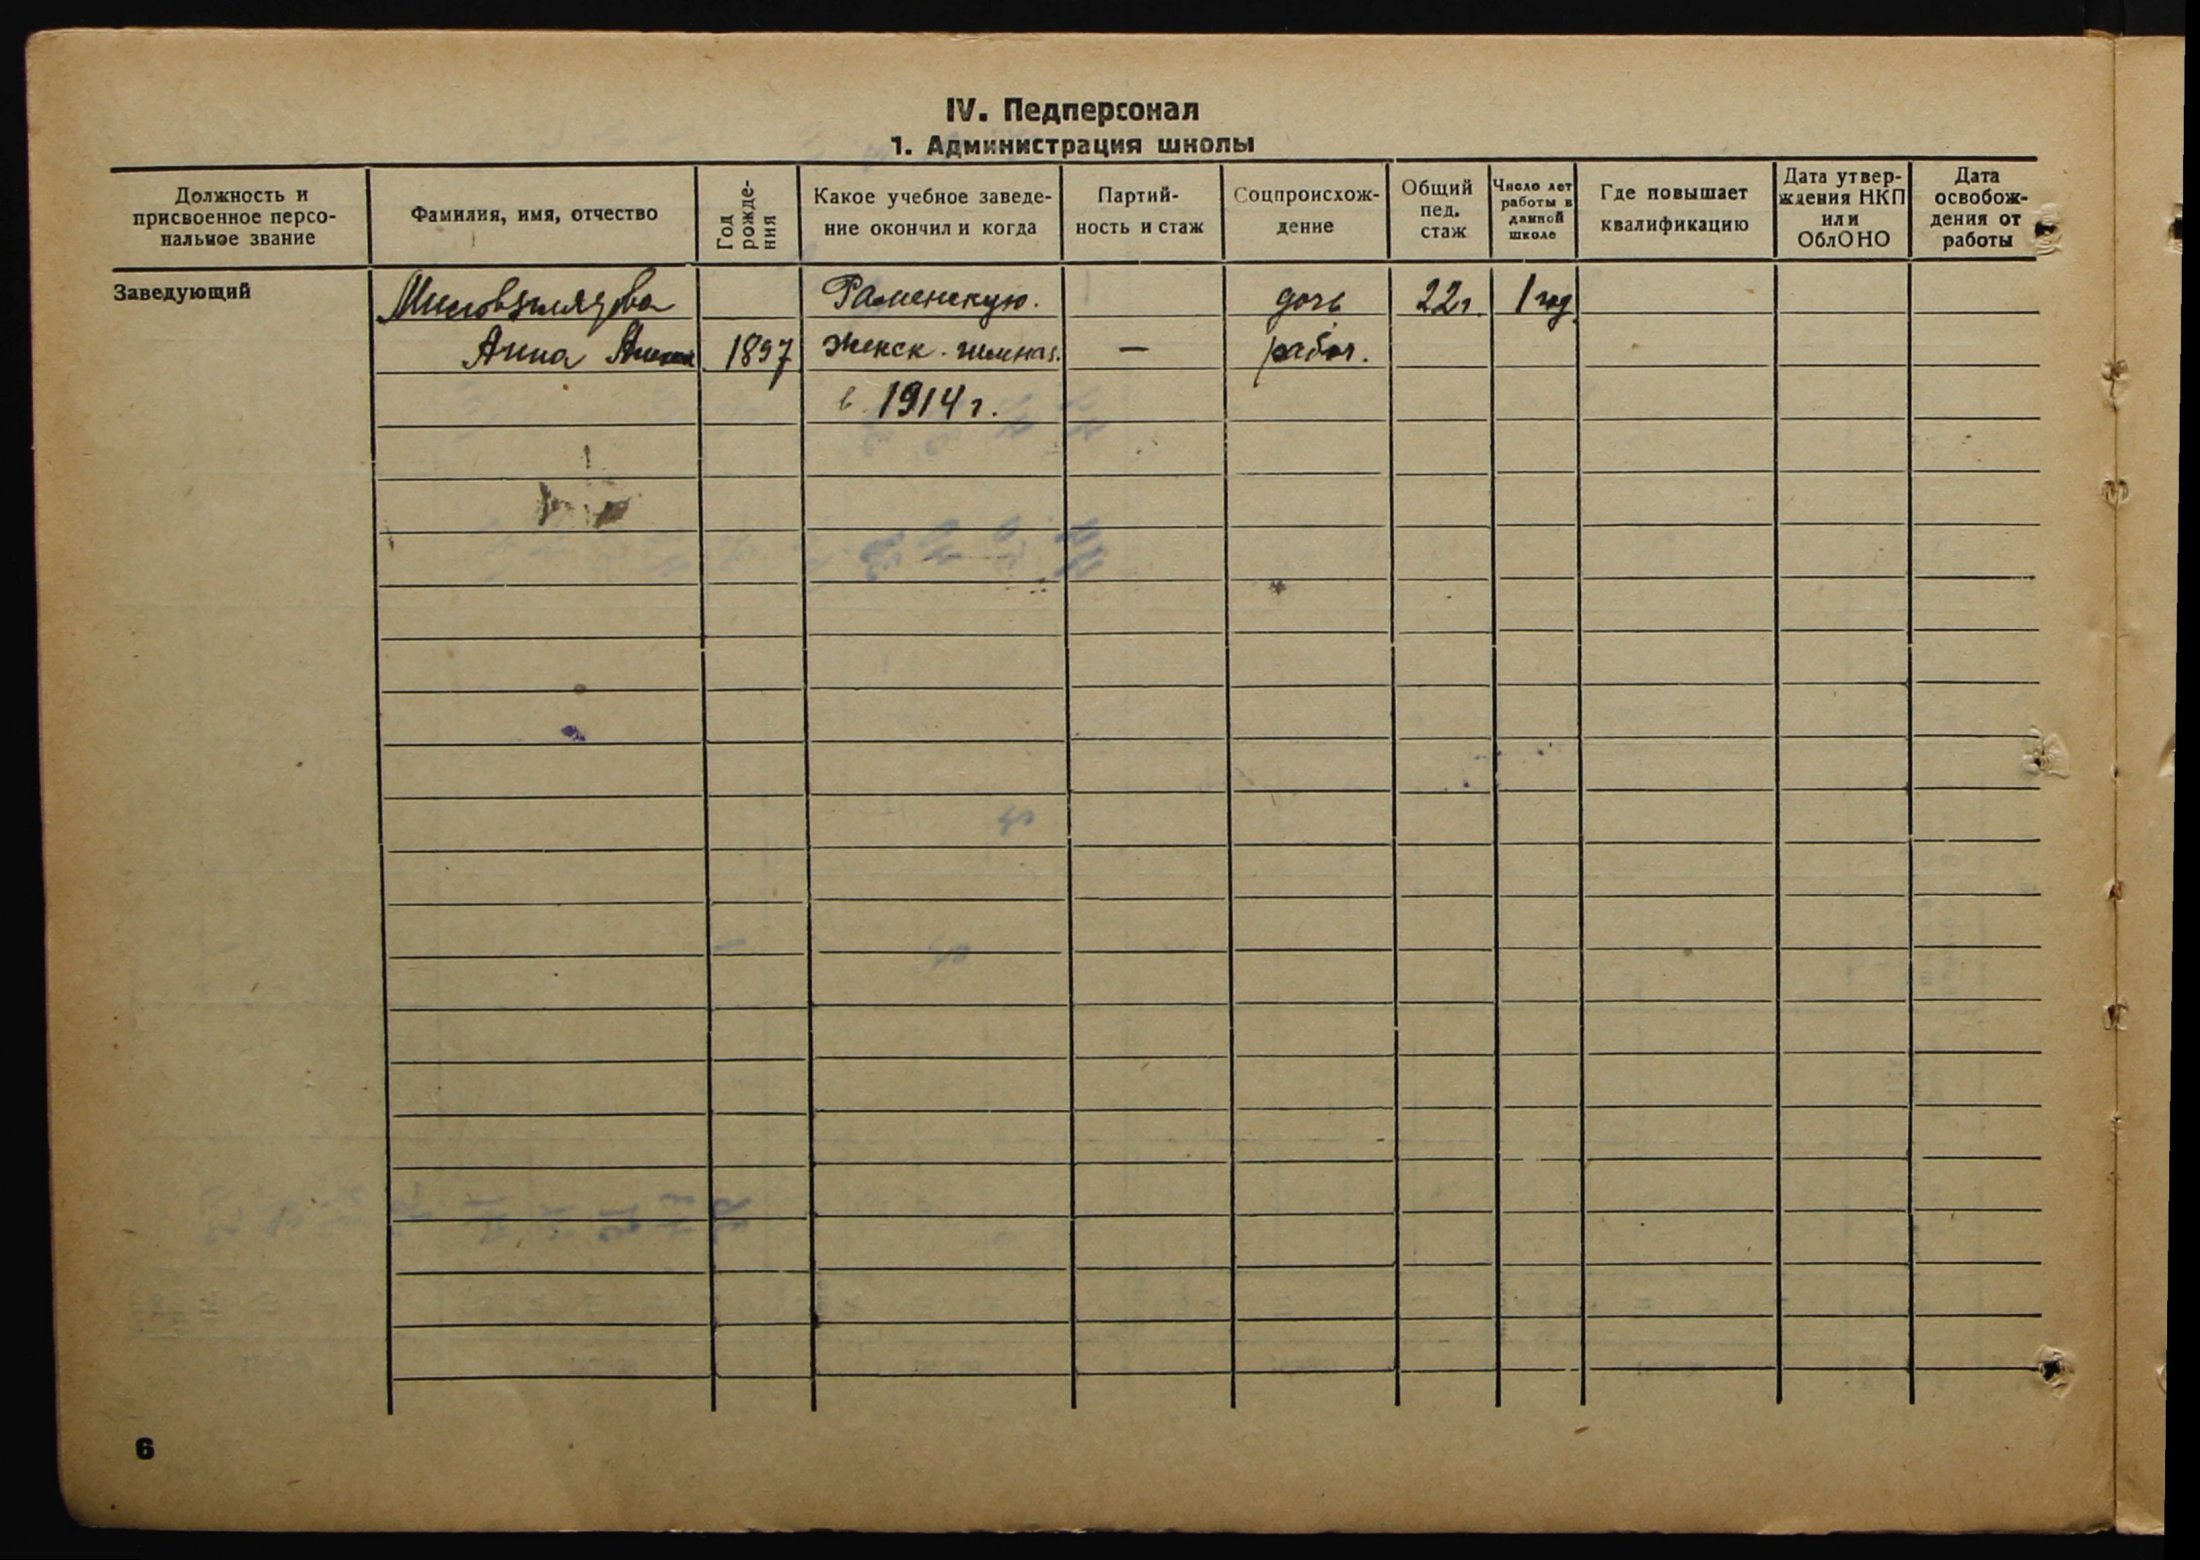 IV. Педперсонал
1. Администрация школы
Должность и
присвоенное персо-
нальное звание
Фамилия, имя, отчество
Год
рожде-
ния
Какое учебное заведе-
ние окончил и когда
Партий-
ность и стаж
Соцпроисхож-
дение
Общий
пед.
стаж
Число лет
работы в
данной
школе
Где повышает
квалификацию
Дата утвер-
ждения НКП
или
ОблОНО
Дата
освобож-
дения от
работы
Заведующий
Миловзглядова
Раменскую.
дочь
22 г.
1 год
Анна
1897
женск. гимназ.
—
рабоч.
в 1914 г.
6